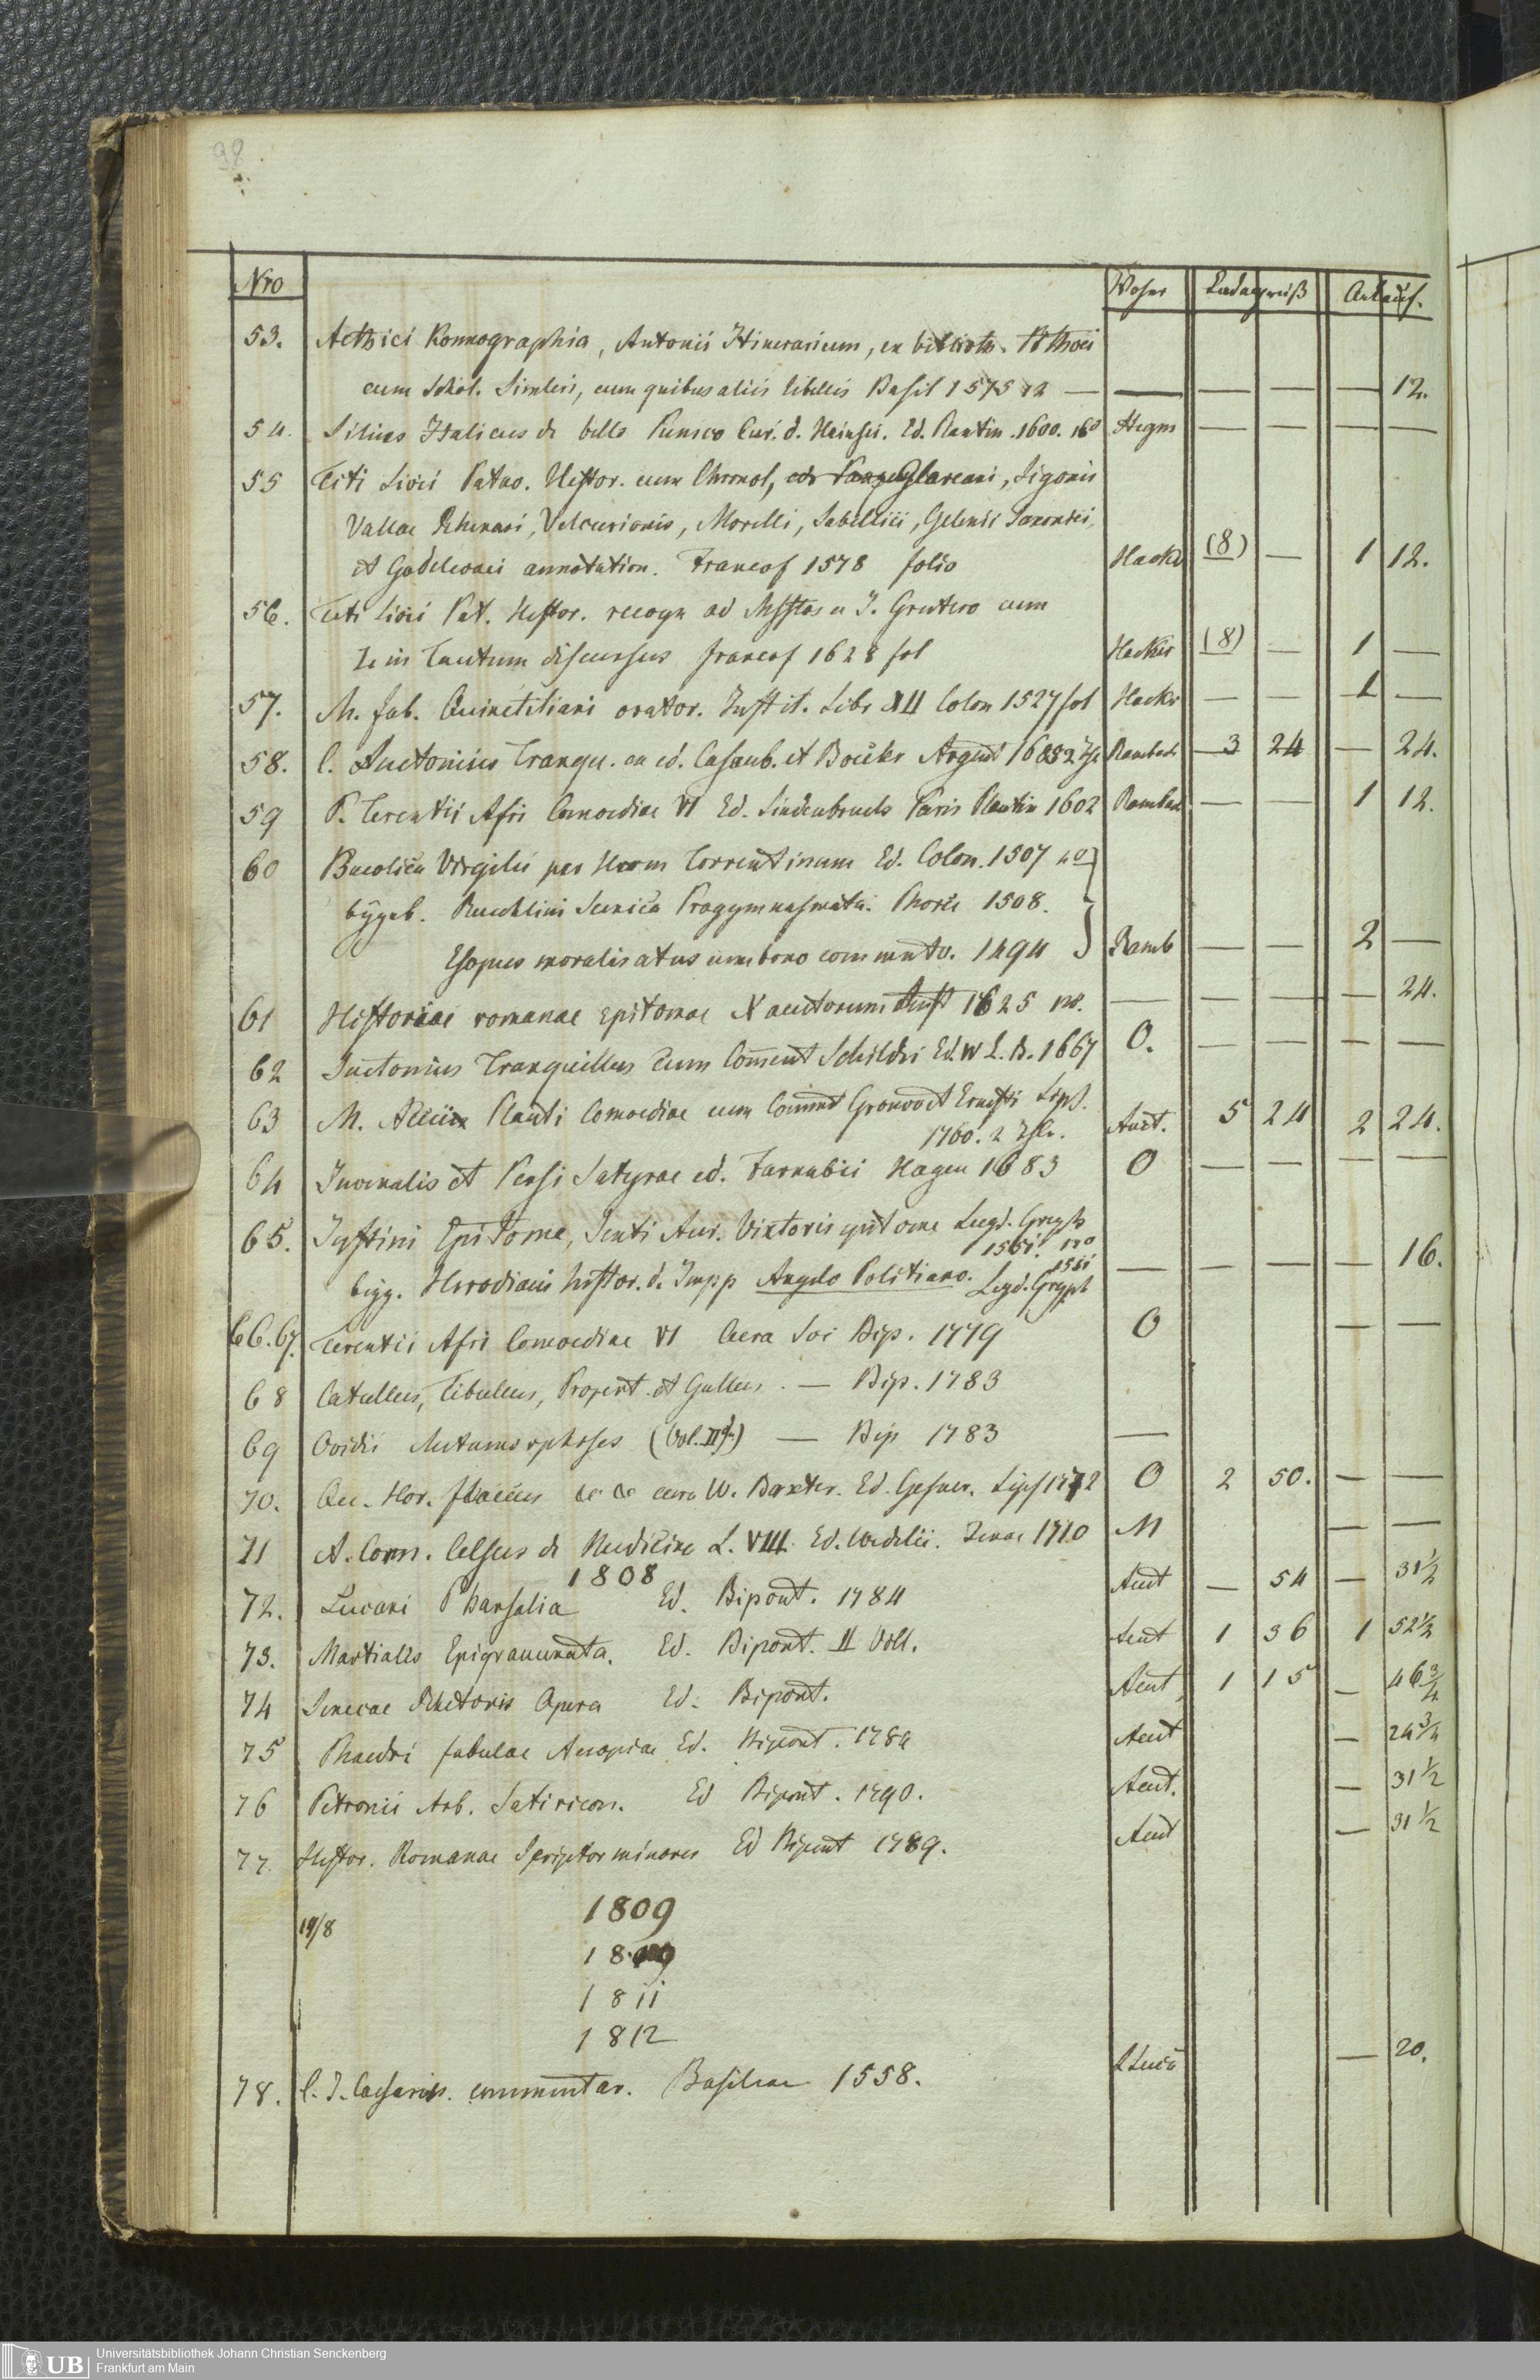 98
Nro Woher Ladenpreiß Ankauf.
53. Aethici Kosmographia, Antonii Itinerarium, ex biblioth. P. Thoei
cum Schol. Simleri, cum quibus aliis libellis Basil 1575 12 — — — — — 12.
54. Silius Italicus de bello Punico Cur. d. Heinsii. Ed. Plantin. 1600. 16° — — — —
55 Titi Livii Patav. Histor. cum Chronol, Glareani, Sigonii
Vallae Rhenani, Velcurionis, Morelli, Sabellici, Gelenii
et Godelevaei annotation. Francof 1578 folio Hacker (8) — 1 12.
56. Titi Livii Pat. Histor. recogn ad Msstos a J. Grutero cum
Ie in Tacitum discursus francof 1628 fol Hacker (8) — 1 —
57. M. fab. Quinctiliani orator. Instit. Libr XII Colon 1527 fol Hackr — — 1 —
58. C. Suetonius Tranqu. ex ed. Casaub. et Boeckr Argent Rambach 3 24 — 24.
59 P. Terentii Afri Comoediae VI Ed. Lindenbruch Paris Plantin 1602 Rambach — — 1 12.
60 Bucolica Virgilii per Herm Torrentinum Ed. Colon. 1507 40
bÿgeb. Reuchlini Scenica Progymnasmata. Phorce 1508.
Esopus moralisatus cum bono commento. 1494 Ramb — — 2 —
61 Historiae romanae Epitomae X auctorum Amst 1625 12. — — — — 24.
62 Suetonius Tranquillus cum Com̄ent Schildri Ed. IV L. B. 1667 O. — — — —
63 M. Accii Plauti Comoediae cum Comment Gronov et Ernesti Lips.
1760. 2 Thle. Auct. 5 24 2 24.
64 Juvenalis et Persi Satyrae ed. Farnabii Hagen 1683 O — — — —
65. Justini Epitome, Sexti Aur. Victoris epitome Lugd. Gryph
1551. 120
beyg. Herodiani histor. d. Impp Angelo Politiano. Lugd. Gryph 1551 — — — — 16.
66.67. Terentii Afri Comoediae VI Cura Soc Bip. 1779 O — —
68 Catullus, Tibullus, Propert. et Gallus. — Bip. 1783
69 Ovidii Metamorphoses (Vol. II) — Bip 1783 —
70. Qu. Hor. flaccus &c &c cura W. Baxter. Ed. Gesner. Lips 1772 O 2 50. — —
71 A. Corn. Celsus de Medicina L. VIII. Ed. Wedelii. Jenae 1710 M — —
1808
72. Lucani Pharsalia Ed. Bipont. 1784 Auct — 54 — 31½
73. Martialis Epigrammata. Ed. Bipont. II Voll. Auct 1 36 1 52½
74 Senecae Rhetoris Opera Ed. Bipont. Auct 1 15 — 46¾
75 Phaedri fabulae Aesopiae Ed. Bipont. 1784 Auct — 24¾
76 Petronii Arb. Satiricon. Ed Bipont. 1790. Auct. — 31½
77. Histor. Romanae Scriptor minores Ed Bipont 1789. Auct — 31½
19/8 1809
1811
1812
78. C. J. Caesaris. commentar. Basileae 1558. — 20.
UB Universitätsbibliothek Johann Christian Senckenberg
Frankfurt am Main